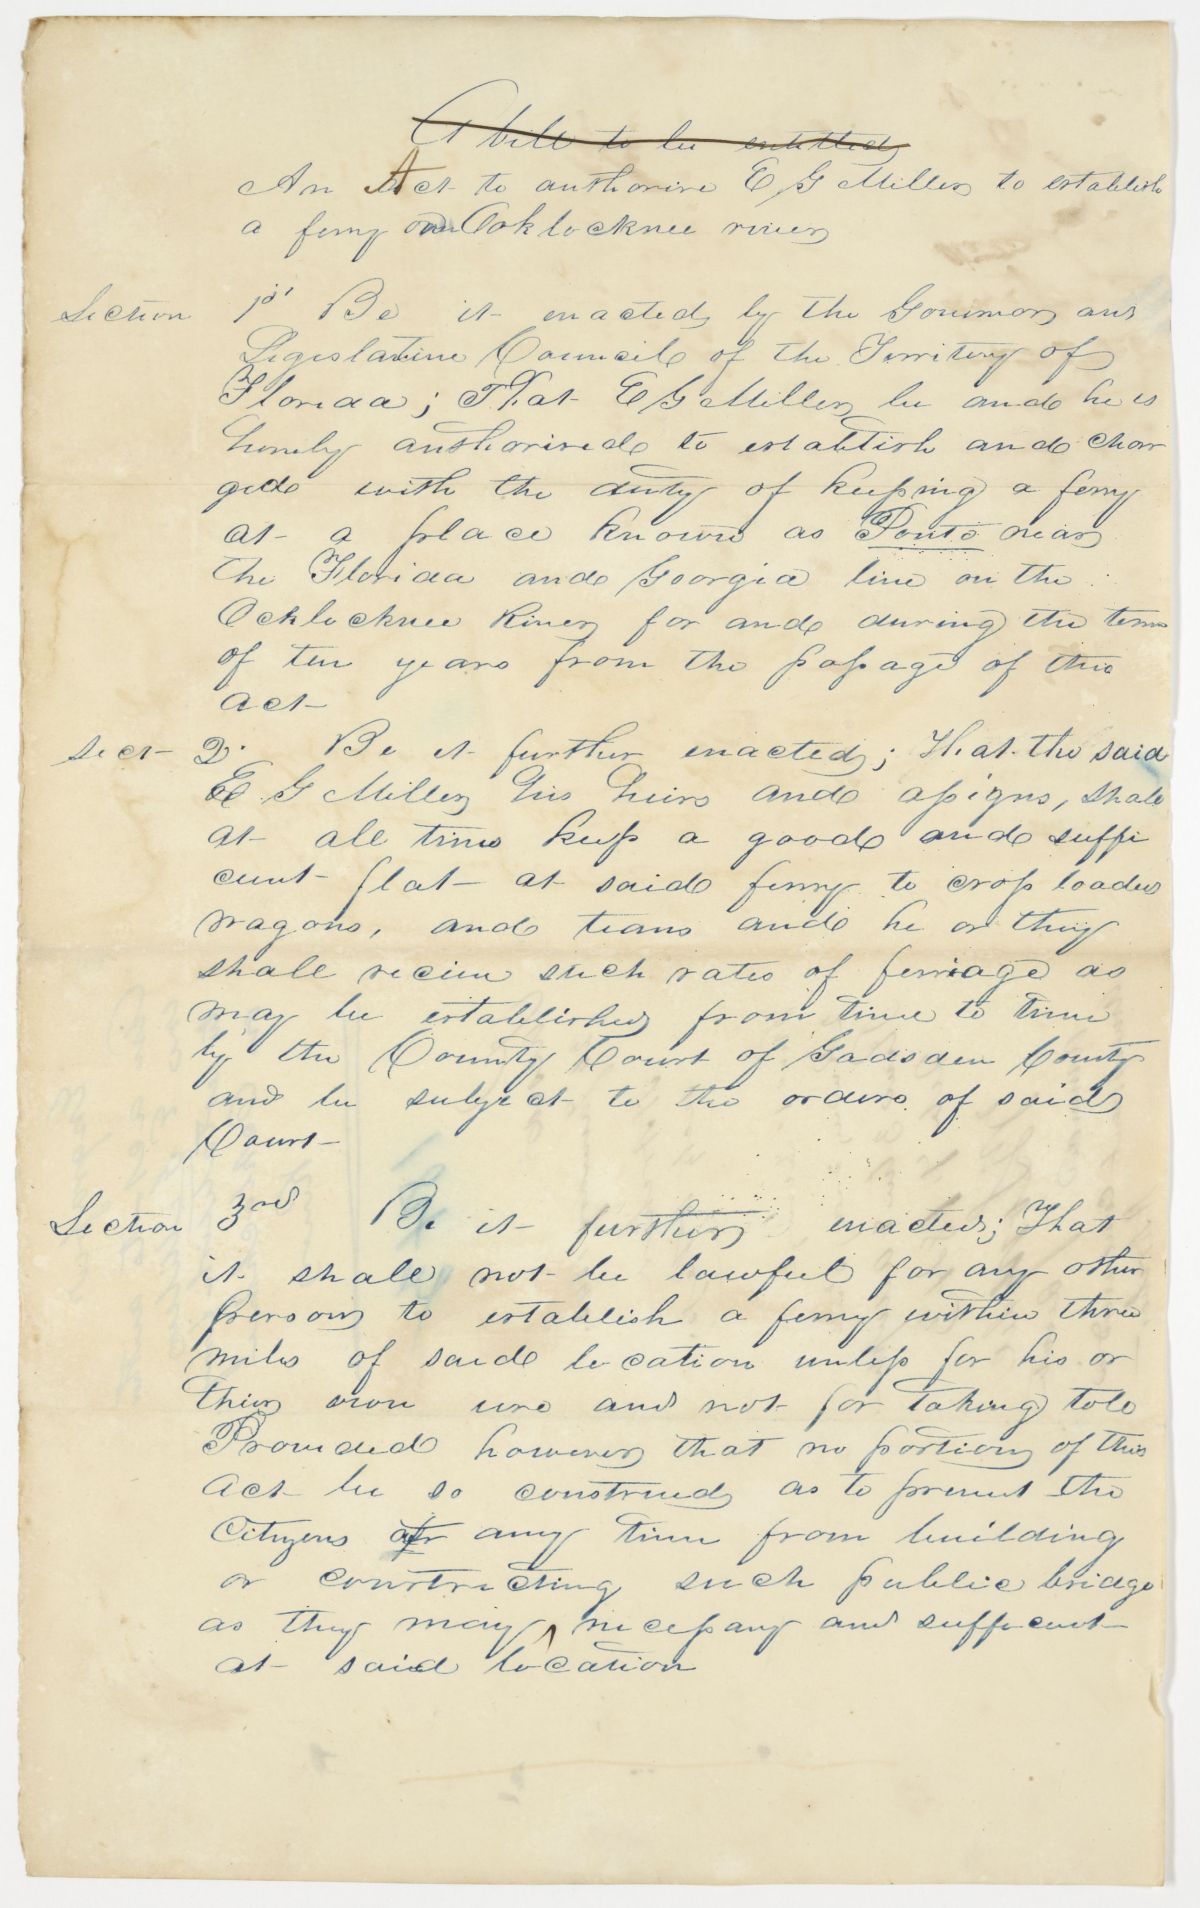 A bill to be entitled
An Act to authorise E G Miller to establish
a ferry on Ocklocknee river
Section 1st Be it enacted by the Governor and
Legislative Council of the Territory of
Florida; That E G Miller be and he is
hereby authorised to establish and char
ged with the duty of keeping a ferry
at a place known as near
the Florida and Georgia line on the
Ocklocknee River for and during the term
of ten years from the passage of this
act
Sect 2. Be it further enacted; That the said
E G Miller his heirs and assigns, shall
at all times keep a good and suffi
cient flat at said ferry to cross loaded
wagons, and teams and he or they
shall recieve such rates of ferriage as
may be established from time to time
by the County Court of Gadsden County
and be subject to the orders of said
Court
Section 3rd Be it further enacted; That
it shall not be lawful for any other
person to establish a ferry within three
miles of said location unless for his or
their own use and not for taking tole
Provided however that no portion of this
act be so construed as to prevent the
Cityzens at any time from building
or constructing such public bridge
as they may ^ necessary and sufficent
at said location